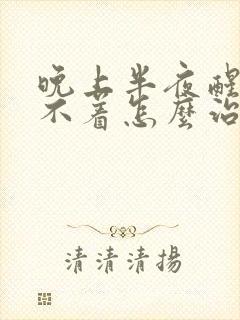 晚上半夜醒
不着怎麽治
清清清揚